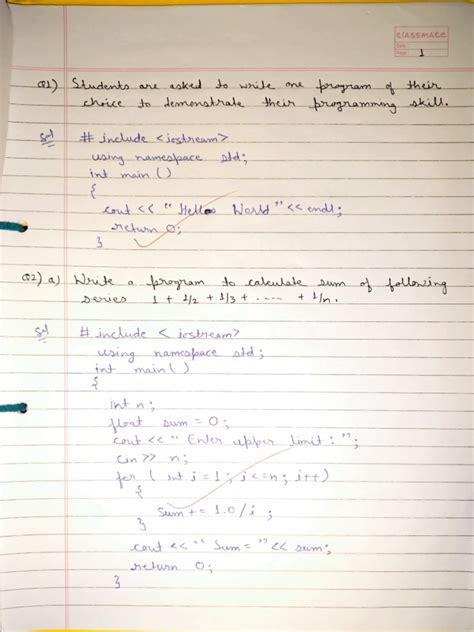 classmate
Date
Page 1
Q1) Students are asked to write one program of their
choice to demonstrate their programming skill.
Sol # include <iostream>
using namespace std;
int main ( )
{
cout << "Hello World" << endl;
return 0;
}
Q2) a) Write a program to calculate sum of following
series 1 + 1/2 + 1/3 + ..... + 1/n.
Sol # include < iostream>
using namespace std;
int main ( )
{
int n;
float sum = 0;
cout << " Enter upper limit : ";
cin >> n;
for ( int i = 1 ; i <= n; i++)
{
Sum += 1.0/i ;
}
cout << " Sum = " << sum;
return 0;
}